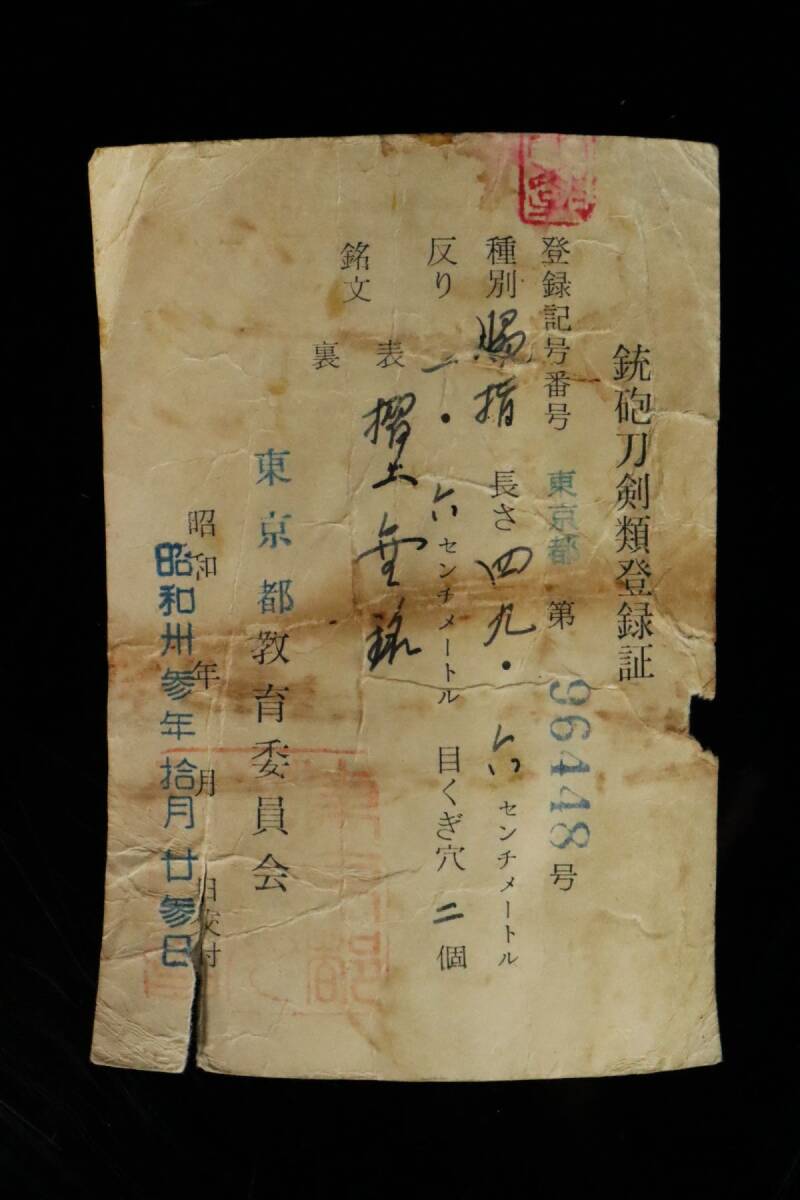 銃砲刀剣類登録証
登録記号番号 東京都 第 96448 号
種別 脇指 長さ 四九・六 センチメートル
反り 一・六 センチメートル 目くぎ穴 二 個
銘文 表 摺上無銘
裏
東京都教育委員会
昭和 年 月 日交付
昭和卅参年拾月廿参日